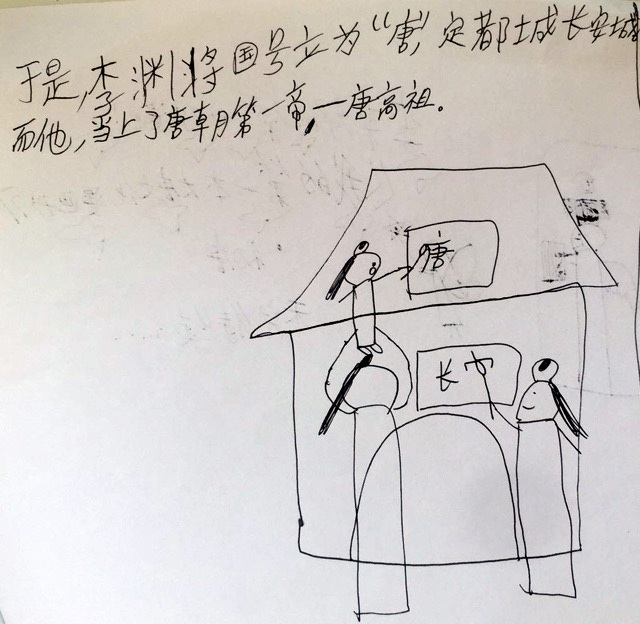 于是,李渊将国号立为“唐”,定都城长安城
而他,当上了唐朝第一帝,—唐高祖。
唐
长安